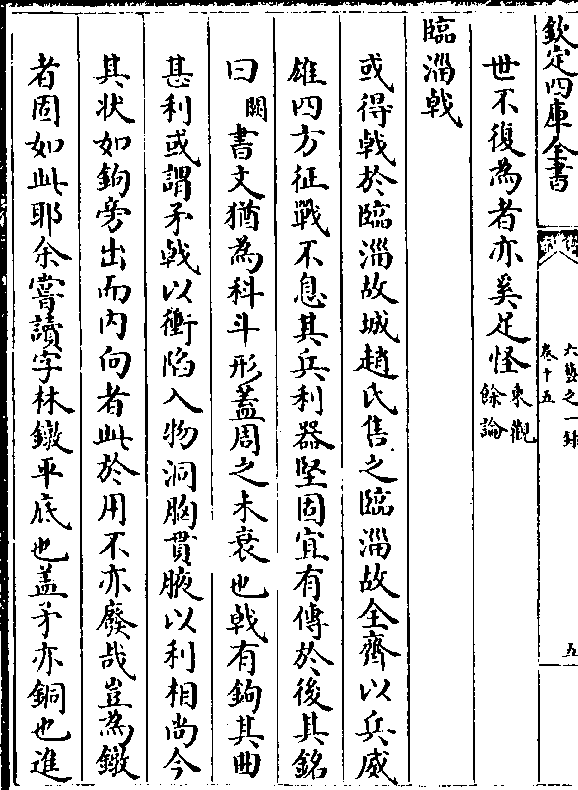 欽定四庫全書
六藝之一錄
卷十五
五
世不復為者亦奚足怪東觀餘論
臨淄戟
或得戟於臨淄故城趙氏售之臨淄故全齊以兵威
雄四方征戰不息其兵利器堅固宜有傳於後其銘
曰闕書文猶為科斗形蓋周之未衰也戟有鉤其曲
甚利或謂矛戟以衝陷入物洞胸貫腋以利相尚今
其状如鉤旁出而内向者此於用不亦廢哉豈為鐓
者固如此耶余嘗讀字林鐓平底也盖矛亦銅也進